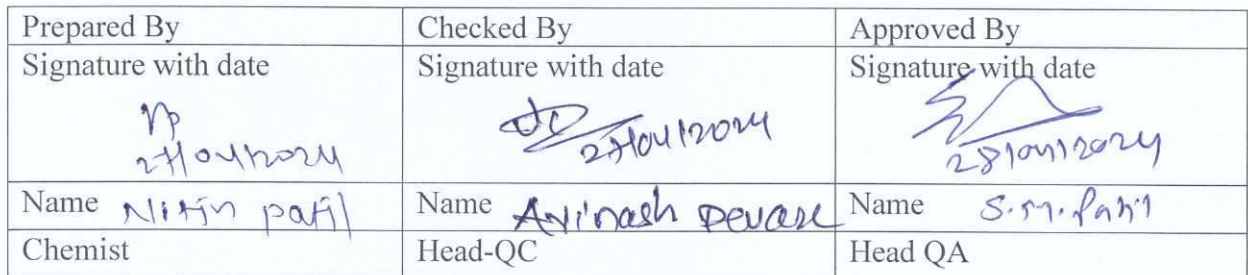 Prepared By Checked By Approved By
Signature with date Signature with date Signature with date
27/04/2024 27/04/2024 28/04/2024
Name Nitin patil Name Avinash Devare Name S.M. Patil
Chemist Head-QC Head QA